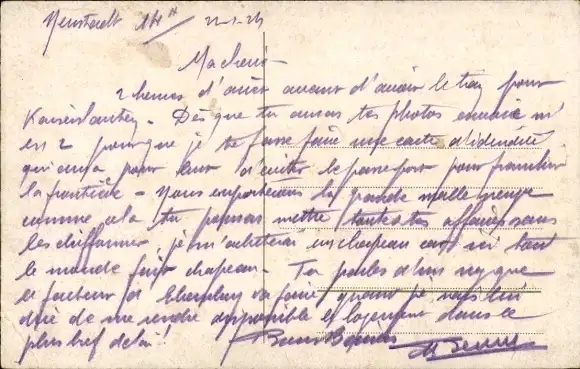 Neustadt 14H / 22-1-21
Ma cherie -
2 heures d'arrêt avant d'avoir le train pour
Kaiserslautern - Dès que tu auras tes photos envoie m'
en 2 pour que je te fasse faire une carte d'identité
qui aura pour but d'éviter le passeport pour franchir
la frontière - Nous emporterons la grande malle
comme cela tu pourras mettre toutes tes affaires sans
les chiffonner, je m'achèterai un chapeau car ici tout
le monde fait chapeau - Tu parles d'un
le facteur de va faire quand je vais lui
dire de me rendre disponible et logement dans le
plus bref délai ! Bons Baisers